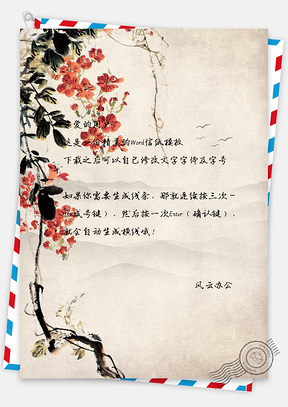 爱的
是一份精美的Word信纸模板
下载之后可以自己修改文字字体及字号
如果你需要生成线条，那就连续按三次-
减号键），然后按一次Enter（确认键），
就会自动生成横线哦！
风云办公